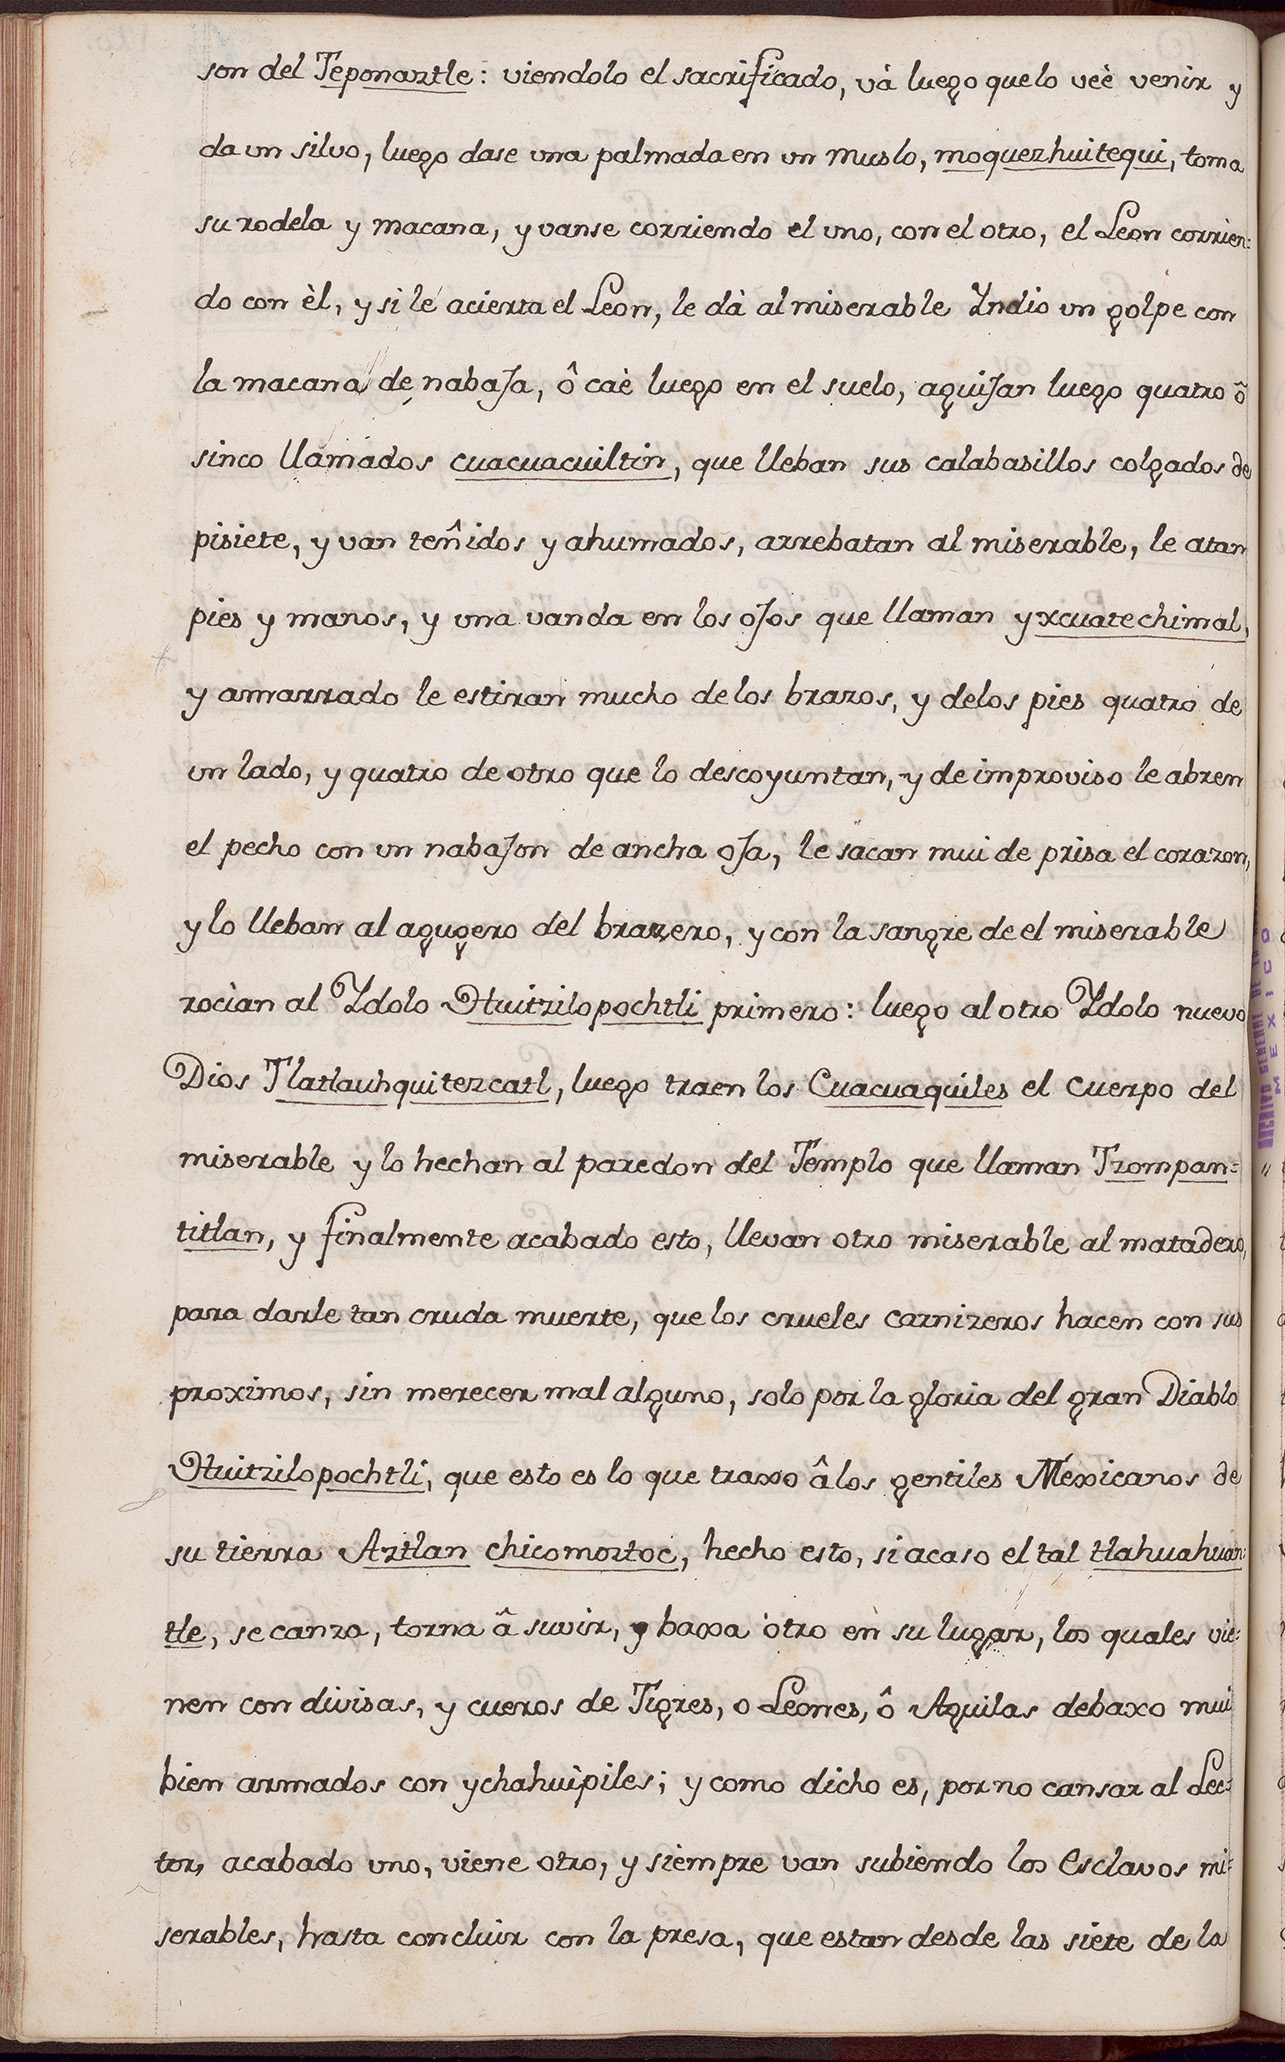 son del Teponaztle: viendolo el sacrificado, và luego quelo veè venir y
da un silvo, luego dase una palmada en un muslo, moquezhuitequi, toma
su rodela y macana, y vanse corriendo el uno, con el otro, el Leon corrien=
do con èl, y si le acierta el Leon, le dà al miserable Yndio un golpe con
la macana de nabaJa, ô caè luego en el suelo, aguiJan luego quatro ô
sinco llamados cuacuacuiltin, que lleban sus calabasillos colgados de
pisiete, y van teñidos y ahumados, arrebatan al miserable, le atan
pies y manos, y una vanda en los oJos que llaman yxcuatechimal,
y amarrado le estiran mucho de los brazos, y delos pies quatro de
un lado, y quatro de otro que lo descoyuntan, y de improviso le abren
el pecho con un nabaJon de ancha oJa, le sacan mui de prisa el corazon,
y lo lleban al agugero del brazero, y con la sangre de el miserable
rocìan al Ydolo Huitzilopochtli primero: luego al otro Ydolo nuevo
Dios Tlatlauhquitezcatl, luego traen los Cuacuaquiles el cuerpo del
miserable y lo hechan al paredon del Templo que llaman Tzompan=
titlan, y finalmente acabado esto, llevan otro miserable al matadero,
para darle tan cruda muerte, que los crueles carnizeros hacen con sus
proximos, sin merecer mal alguno, solo por la gloria del gran Diablo
Huitzilopochtli, que esto es lo que traxo â los gentiles Mexicanos de
su tierra Aztlan chicomoztoc, hecho esto, si acaso el tal tlahuahuan=
tle, se canza, torna â suvir, y baxa otro en su lugar, los quales vie=
nen con divisas, y cueros de Tigres, o Leones, ô Aguilas debaxo mui
bien armados con ychahuìpiles; y como dicho es, por no cansar al Lec=
tor, acabado uno, viene otro, y siempre van subiendo los esclavos mi=
serables, hasta concluir con la presa, que estan desde las siete de la
MEXICO